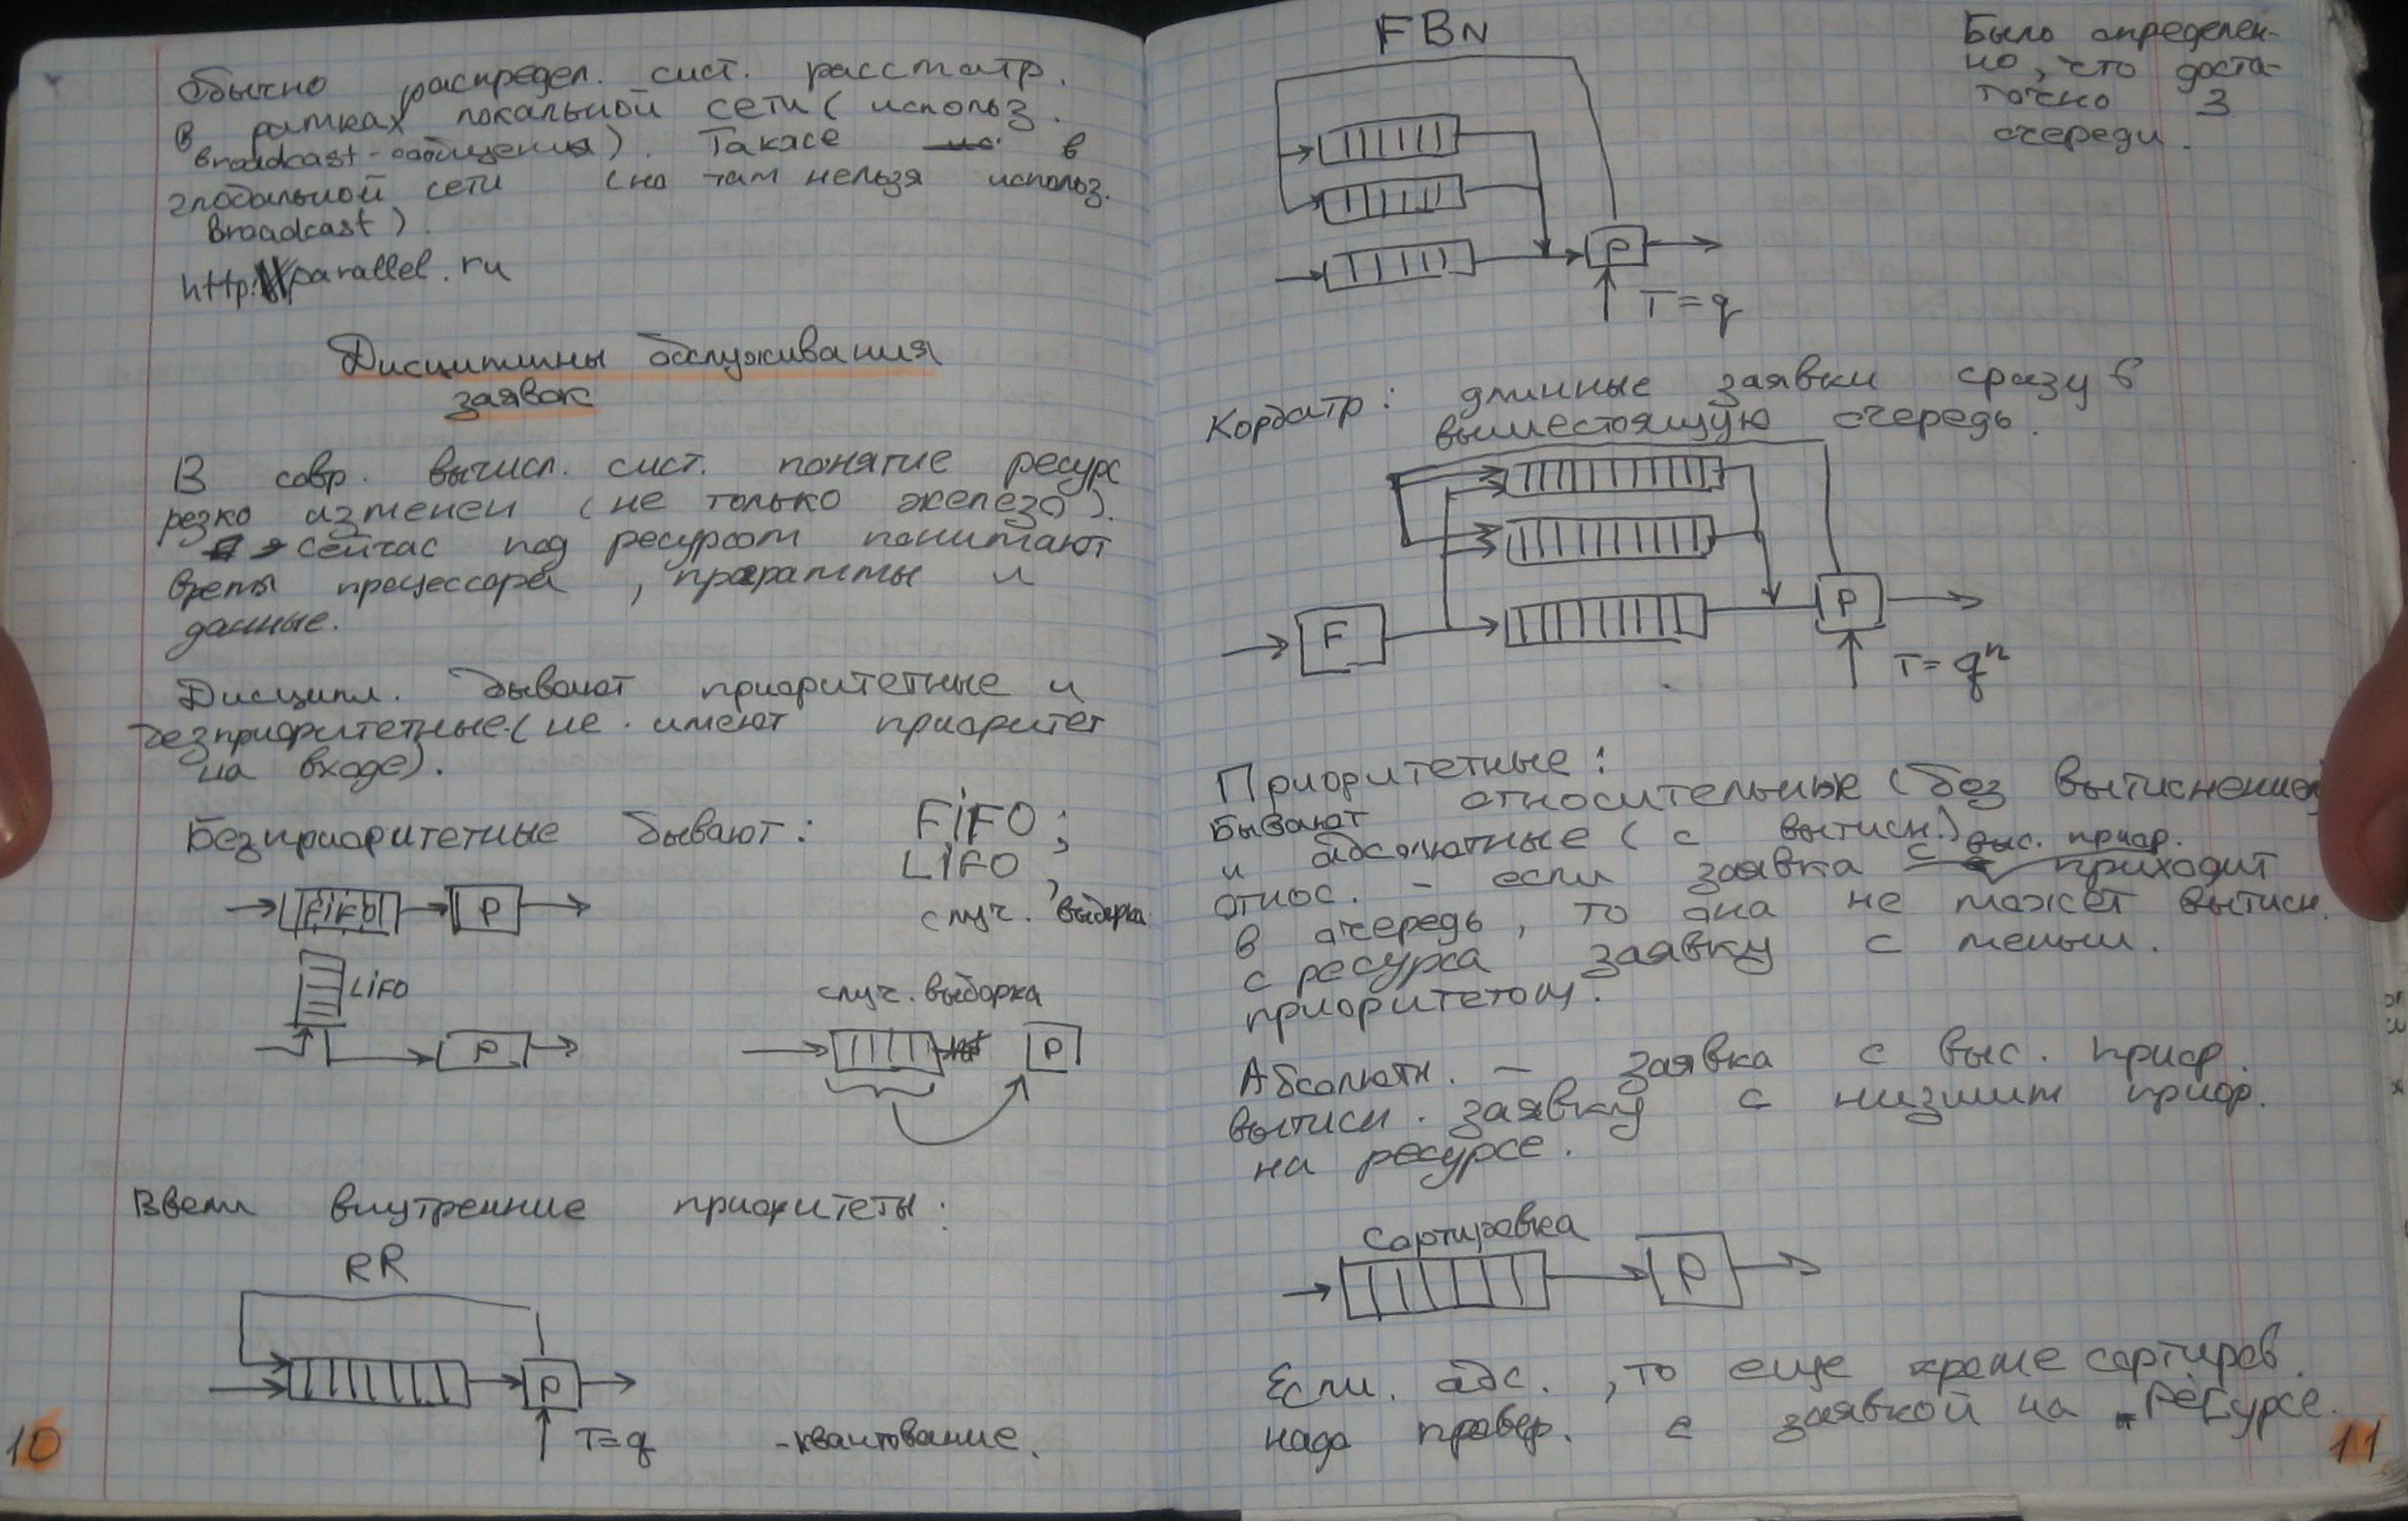 Обычно распредел. сист. рассматр.
в рамках локальной сети ( использ.
broadcast-сообщения). Также в
глобальной сети (но там нельзя использ.
Broadcast).
http://parallel.ru
Дисциплины обслуживания
заявок
В совр. вычисл. сист. понятие ресурс
резко изменен (не только железо).
сейчас под ресурсом понимают
время процессора, программы и
данные.
Дисципл. бывают приоритетные и
безприоритетные (не имеют приоритет
на входе).
Безприоритетные бывают: FiFO;
LiFO,
случ. выборка
FiFO P
LiFO
P
случ. выборка
P
Ввели внутренние приоритеты:
RR
P
T=q -квантование.
10
FBN
Было определен-
но, что доста-
точно 3
очереди.
P
T=q
Корбатр: длинные заявки сразу в
вышестоящую очередь.
F
P
T=qⁿ
Приоритетные:
Бывают относительные (без вытиснения)
и абсолютные (с вытисн.)
относ. - если заявка с выс. приор. приходит
в очередь, то она не может вытисн.
с ресурса заявку с меньш.
приоритетом.
Абсолютн. - заявка с выс. приор.
вытисн. заявку с низшим приор.
на ресурсе.
Сортировка
P
Если абс., то еще кроме сортиров.
надо провер. с заявкой на ресурсе.
11